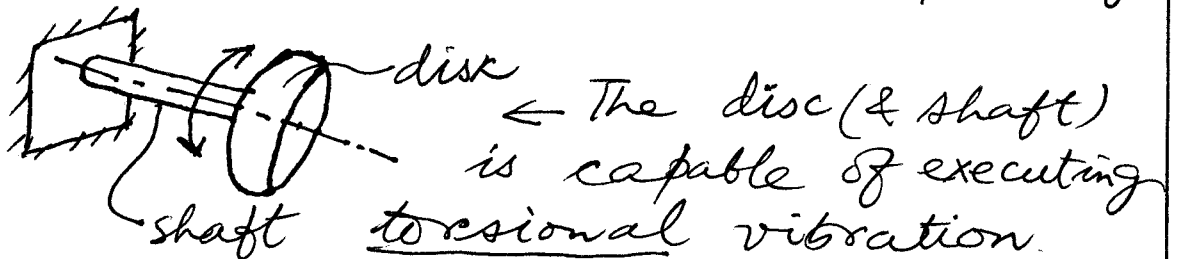 disk
← The disc (& shaft)
is capable of executing
shaft torsional vibration.